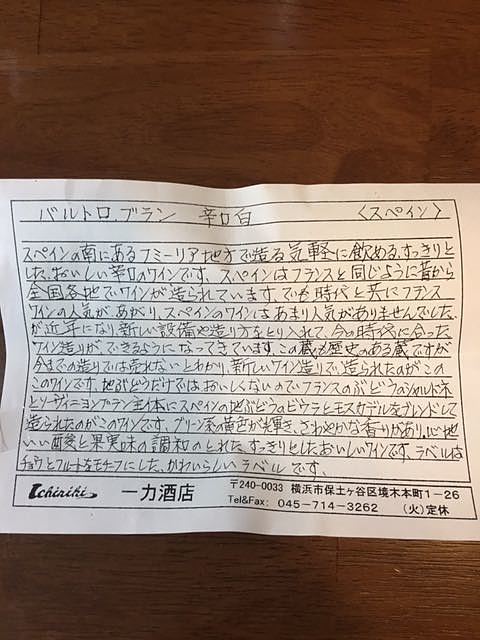 バルトロ.ブラン 辛口白 〈スペイン〉
スペインの南にあるフミーリア地方で造る気軽に飲める、すっきりと
した、おいしい辛口のワインです。スペインはフランスと同じように昔から
全国各地でワインが造られています。でも時代と共にフランス
ワインの人気が、あがり、スペインのワインは、あまり人気がありませんでした。
が近年になり新しい設備や造り方をとり入れて、今の時代に合った
ワイン造りが、できるようになってきています。この蔵も歴史のある蔵ですが
今までの造りでは売れないとわかり、新しいワイン造りで、造られたのがこの
このワインです。地ぶどうだけではおいしくないのでフランスのぶどうのシャルドネ
とソーヴィニヨンブラン主体にスペインの地ぶどうのビウラとモスカデルをブレンドして
造られたのがこのワインです。グリーン系の黄色が輝き、さわやかな香りがあり、心地
いい酸と果実味の調和のとれた、すっきりとしたおいしいワインです。ラベルは
チョウとフルートをモチーフにした、かわいらしいラベルです。
Ichiriki 一力酒店 〒240-0033 横浜市保土ヶ谷区境木本町1-26
Tel&Fax: 045-714-3262 (火)定休